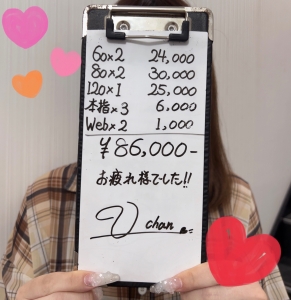 60×2 24,000
80×2 30,000
120×1 25,000
本指×3 6,000
Web×2 1,000
¥86,000-
お疲れ様でした!!
chan